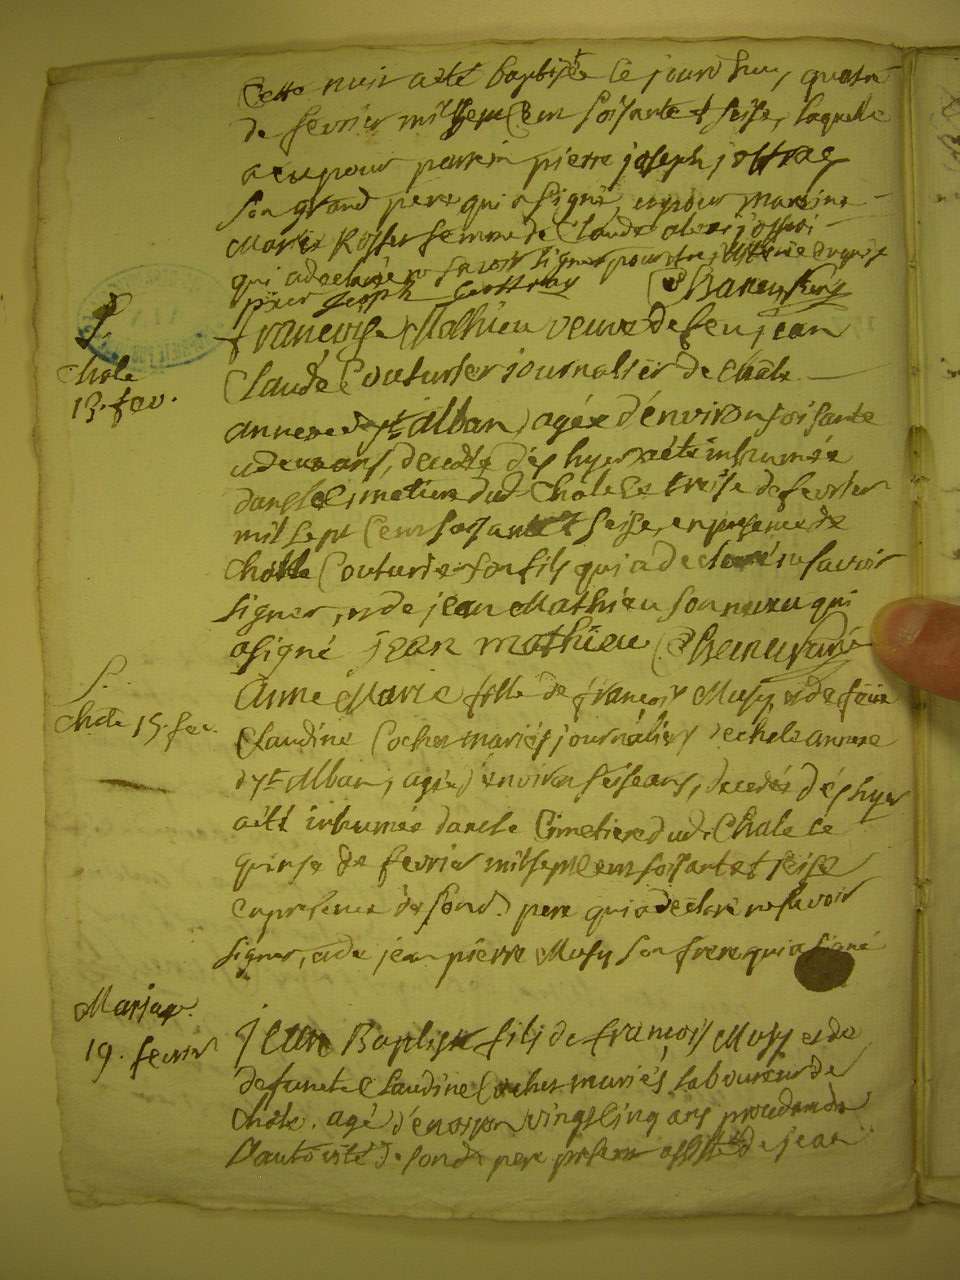 Cette nuit a été baptisée le jourd huy quatre
de fevrier mil sept Cent soisante et seise, laquelle
a eu pour parrein pierre joseph joffray
son grand pere qui a signé, et pour marreine
Marie Rosset femme de Claude joffroi
qui a declaré ne savoir signer pour
pier joseph
françoise Mathieu veuve de feu jean
S.
Chale
13. fev.
Claude Couturier journalier de Chale
annexe de st alban, agée d'environ soisante
ans, decedée dés hyer a été inhumée
dans le Cimetiere dud. Chale le treise de fevrier
mil sept Cent soisante et seise, en presence de
Couturier son fils qui a declaré ne savoir
signer, et de jean Mathieu son neveu qui
a signé jean mathieu
S.
Chale 15. fev.
Anne Marie fille de françois Musy et de feüe
Claudine Cochet mariés journaliers de chale annexe
de st Alban, agée d'environ seise ans, decedée dés hyer
a été inhumée dans le Cimetiere dud. Chale le
quinse de fevrier mil sept Cent soisante et seise
en presence de sond. pere qui a declaré ne savoir
signer, et de jean pierre Musy son frere qui a signé
Mariage.
19. fevrier
Jean Baptiste fils de françois Musy et de
defunte Claudine Cochet mariés laboureur de
Chale. agé d'environ vingt Cinq ans procedant de
L'autorité de sond. pere present assisté de jean